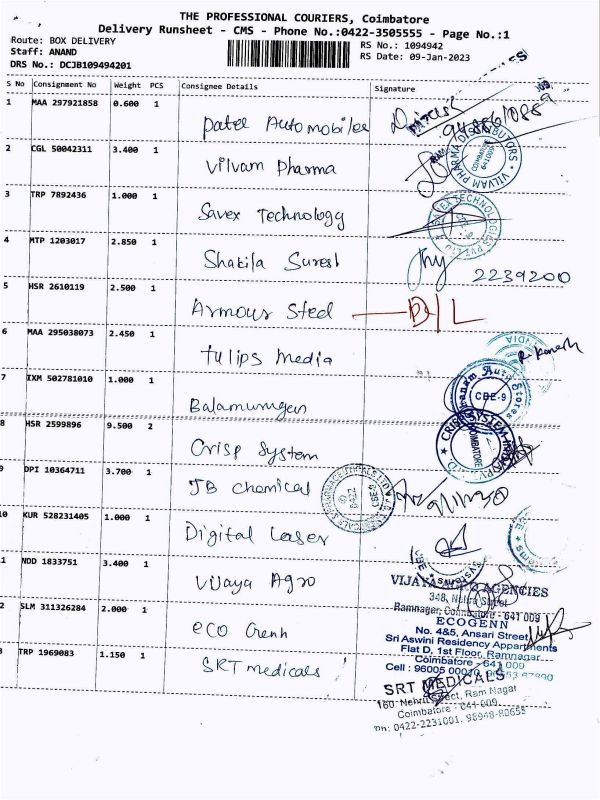 THE PROFESSIONAL COURIERS, Coimbatore
Delivery Runsheet - CMS - Phone No.:0422-3505555 - Page No.:1
Route: BOX DELIVERY
Staff: ANAND
DRS No.: DCJB109494201
RS No.: 1094942
RS Date: 09-Jan-2023
S No Consignment No Weight PCS Consignee Details Signature
1 MAA 297921858 0.600 1 Patel Automobiles
2 CGL 50042311 3.400 1 Vilvam Pharma
VILVAM PHARMA DISTRIBUTORS
3 TRP 7892436 1.000 1 Savex Technology
SAVEX TECHNOLOGIES PVT LTD
4 MTP 1203017 2.850 1 Shakila Suresh 2239200
5 HSR 2610119 2.500 1 Armour Steel D/L
6 MAA 295038073 2.450 1 Tulips Media
7 IXM 502781010 1.000 1 Balamurugan
Auto Stores
CBE-9
8 HSR 2599896 9.500 2 Crisp System
COIMBATORE
9 DPI 10364711 3.700 1 JB Chemical
CBE-9
10 KUR 528231405 1.000 1 Digital Laser
11 NDD 1833751 3.400 1 Vijaya Agro
VIJAYA AGRO AGENCIES
348, Nehru Street
Ramnagar, Coimbatore - 641 009
12 SLM 311326284 2.000 1 eco Genn
ECOGENN
No. 4&5, Ansari Street
Sri Aswini Residency Appartments
Flat D, 1st Floor, Ramnagar
Coimbatore - 641 009
Cell : 96005 00010,
13 TRP 1969083 1.150 1 SRT medicals
SRT MEDICALS
160, Nehru Street, Ram Nagar
Coimbatore - 641 009.
Ph: 0422-2231001, 98948-80655